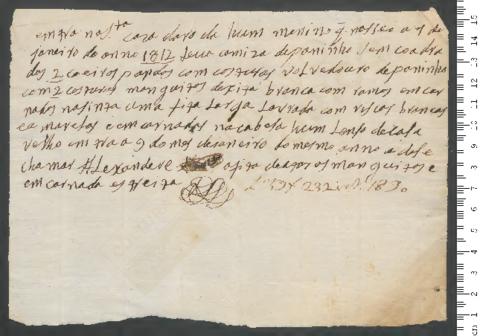 entra nesta casa da roda hum menino q nasseo a 9 de
janeiro do anno 1812 leva camiza de paninho sem coadra
dos 2 coeiros pardos com costuras volvedouro de paninho
com 2 costuras manguitos de xita branca com ramos emcar
nados na sinta uma fita larga lavrada com riscos brancos
e amarelos e emcarnados na cabesa hum lenso de casa
velho entra a 9 do mes de janeiro do mesmo anno a de se
chamar Alexandere a fita de a per os manguitos e
emcarnada estreita